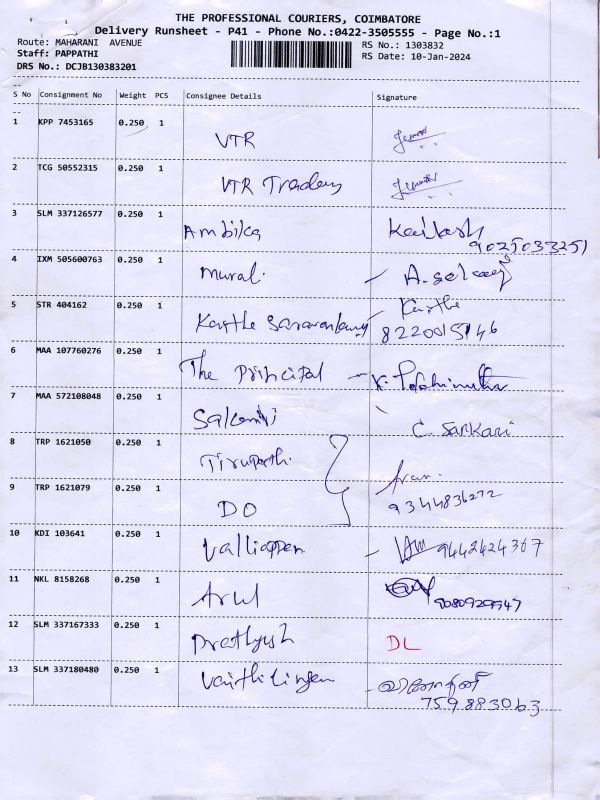 THE PROFESSIONAL COURIERS, COIMBATORE
Delivery Runsheet - P41 - Phone No.:0422-3505555 - Page No.:1
Route: MAHARANI AVENUE RS No.: 1303832
Staff: PAPPATHI RS Date: 10-Jan-2024
DRS No.: DCJB130383201
S No Consignment No Weight PCS Consignee Details Signature
1 KPP 7453165 0.250 1 VTR
2 TCG 50552315 0.250 1 VTR Traders
3 SLM 337126577 0.250 1 Ambika Kailash
9025033251
4 IXM 505600763 0.250 1 Murali A.
5 STR 404162 0.250 1 Karthe Karthe
8220015146
6 MAA 107760276 0.250 1 The Principal
7 MAA 572108048 0.250 1 C. Sankari
8 TRP 1621050 0.250 1 Tirupathi
9 TRP 1621079 0.250 1 DO 9344836272
10 KDI 103641 0.250 1 Valliappan 9442424367
11 NKL 8158268 0.250 1 Arul
12 SLM 337167333 0.250 1 Prathyush DL
13 SLM 337180480 0.250 1 Vaithilingam
759883063